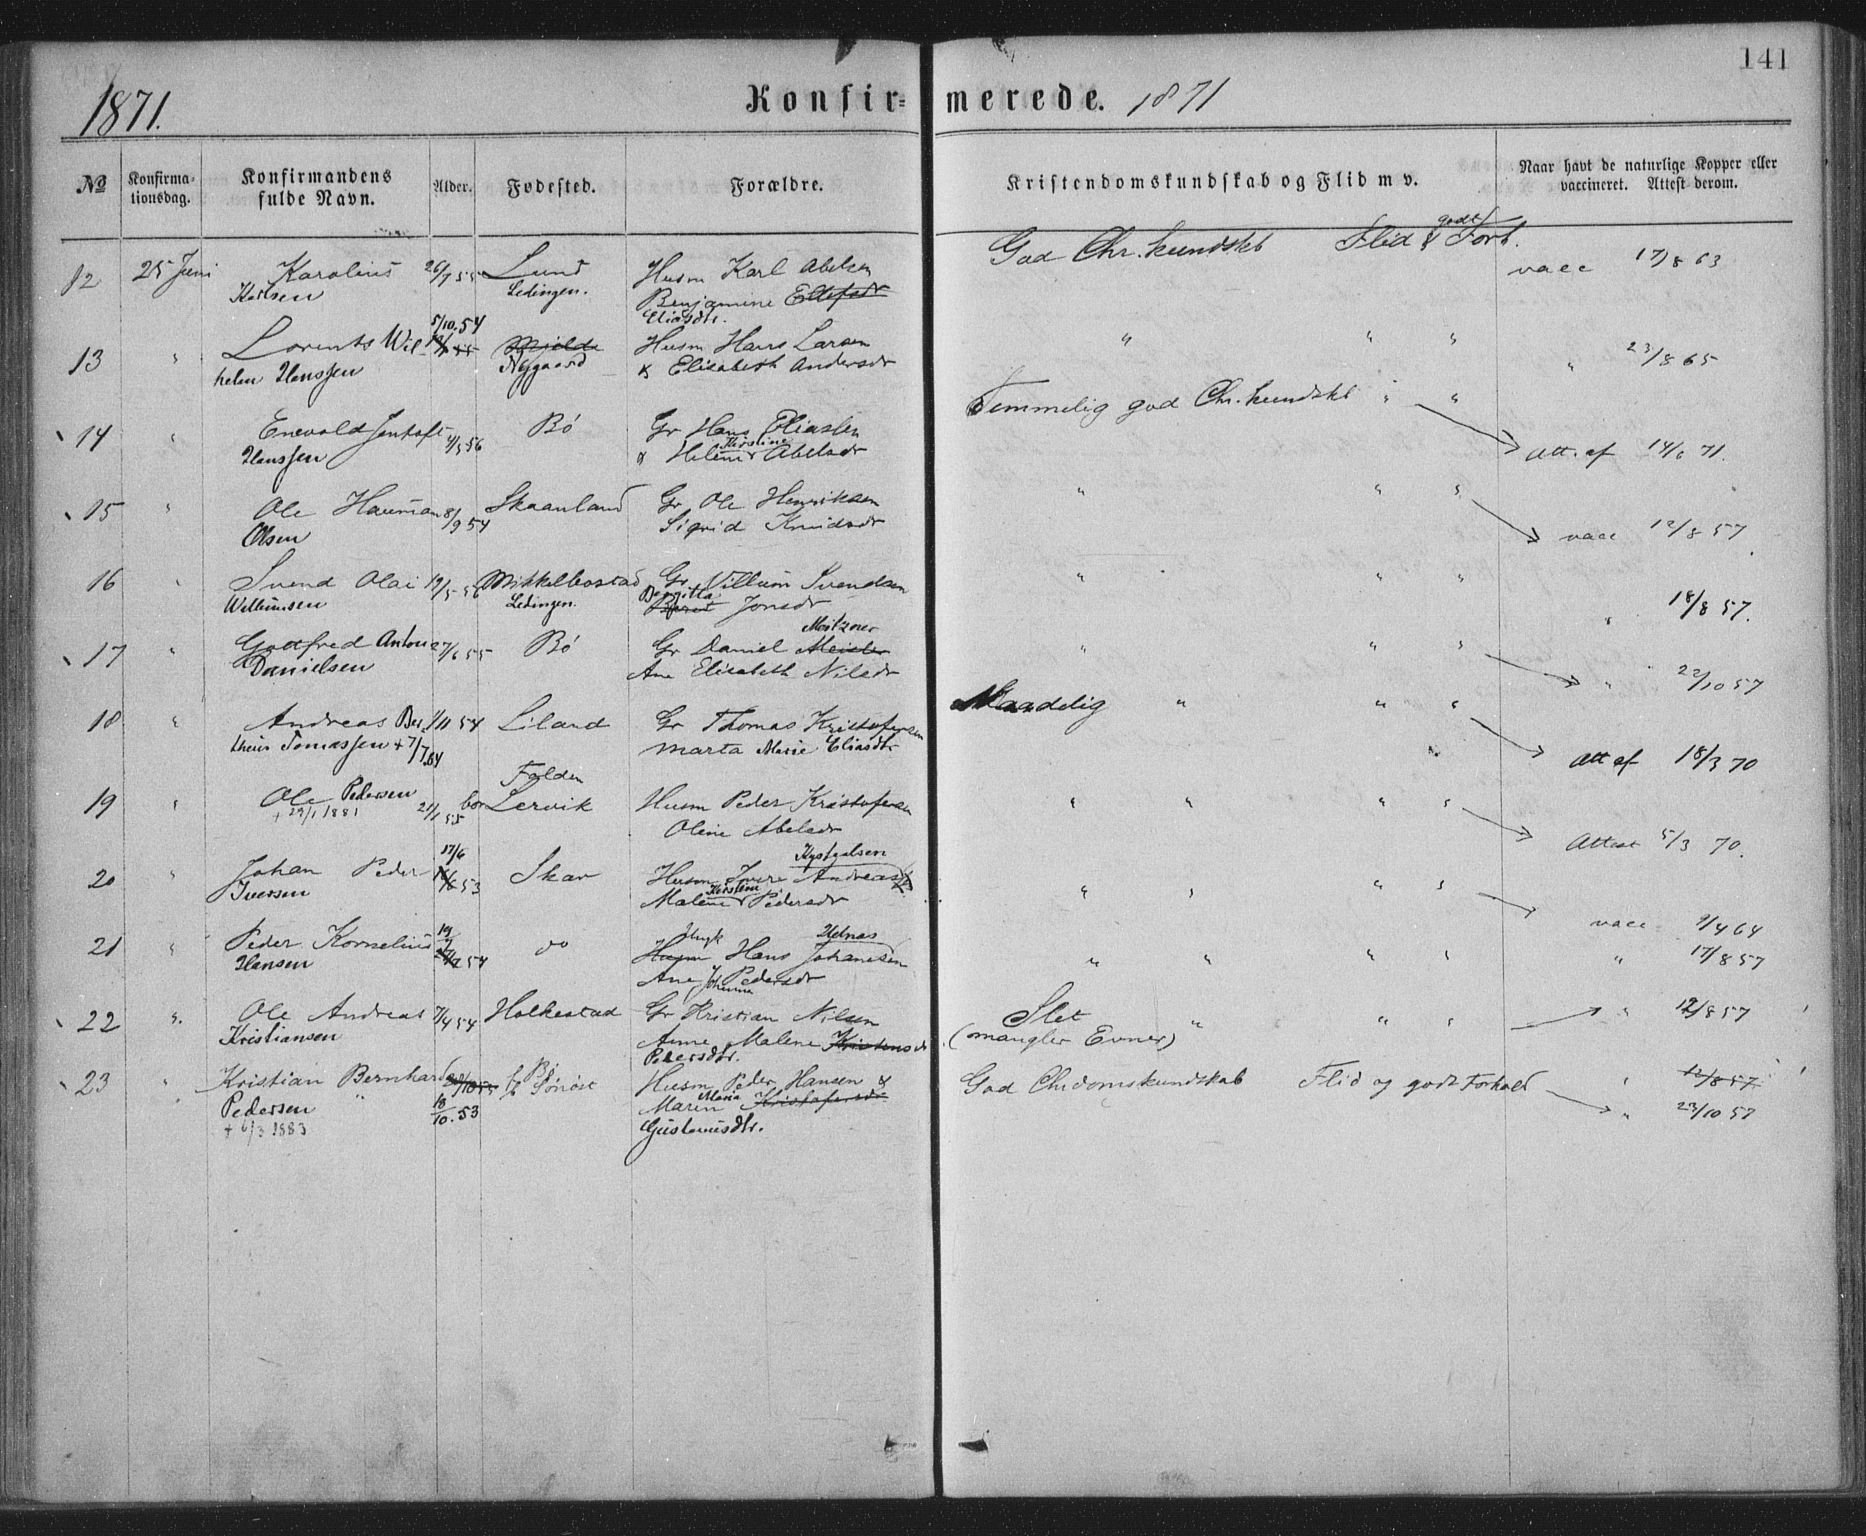 141
1871.
Konfir= merede. 1871
No
Konfirma-
tionsdag.
Konfirmandens
fulde Navn.
Alder.
Fødested.
Forældre.
Kristendomskundskab og Flid m v.
Naar havt de naturlige Kopper eller
vaccineret. Attest derom.
12 25 Juni Karolius 26/7 55 Lund Husm Karl Abelsen God Chr. kundskb Flid & godt Forh. vacc 17/8 63
Karlsen Lødingen. Benjamine Ellefsdr
Eliasdtr.
5/10.54
13 " Lorents Wil- Mjelde Husm Hans Larsen " " " " 23/8 65
helm Hanssen Nygaard & Elisabeth Andersdr
14 " Enevold Jentoft 4/5 56 Bö Gr Hans Eliassen Temmelig god Chr. kundskb " " Att. af 14/6 71.
Hanssen & Helene Kirstine Abelsdr
15 " Ole Hauman 8/9 54 Skaanland Gr Ole Henriksen " " " vacc 12/8 57.
Olsen Sigrid Knudsdr
16 " Svend Olai 19/5 56 Mikkelbostad Gr Villum Svendsen " " " " 18/8 57.
Willumsen Lødingen. Bergitta Berit Jonsdr
Meitzner
17 " Gottfred Anton 27/6 55 Bö Gr Daniel Meisler " " " " 22/10 57
Danielsen Ane Elisabeth Nilsdr
18 " Andreas Ber- 1/11 54 Liland Gr Thomas Kristofersen Maadelig " " " Att af 18/3 70
theus Tomassen + 7/7.64 Marta Marie Eliasdtr
Falden
19 " Ole Pedersen 21/1 55 bor Lervik Husm Peder Kristofersen " " " " Attest 5/3 70.
+ 29/1 1881 Oline Abelsdr
17/6 Kystgelsen
20 " Johan Peder 53 Skar Husm Iver Andreas " " " " vacc 9/4 64
Iversen Malene Kirstine Pedersdr
19/7 Udnæs
21 " Peder Kornelius 54 do Husm Hans Johannesen " " " " " 17/8 57
Hansen Ane Johanna Pedersdr
22 " Ole Andreas 7/4 54 Holkestad Gr Kristian Nilsen Slet " " " " 12/8 57
Kristiansen Anne Malene Kristensdr (mangler Evner)
Pedersdtr.
23 " Kristian Bernhard Bö Sörost Husm Peder Hansen & God Chrdomskundskab Flid og godt Forhold " 12/8 57.
Pedersen 18/10.53 Maren Maria Kristofersdr " 23/10 57
+ 6/3 1883 Gustavusdtr.